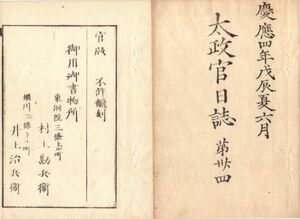 慶應四年戊辰夏六月
太政官日誌 第廿四
官版 不許飜刻
御用御書物所
東洞院三條上ル町
村上勘兵衛
堀川二條下ル町
井上治兵衛